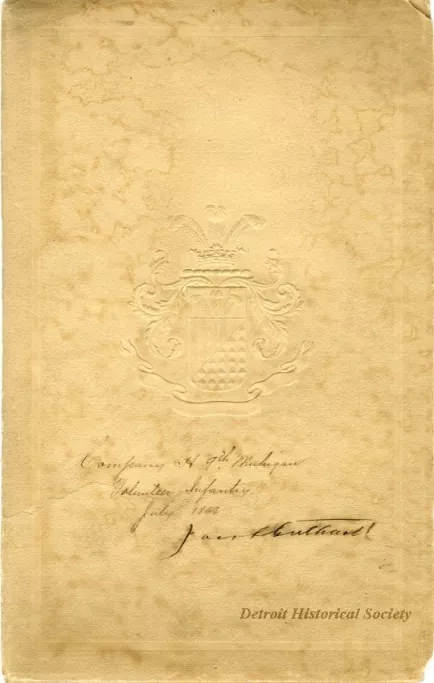 Company H 9th Michigan
Volunteer Infantry
July 1862
Detroit Historical Society